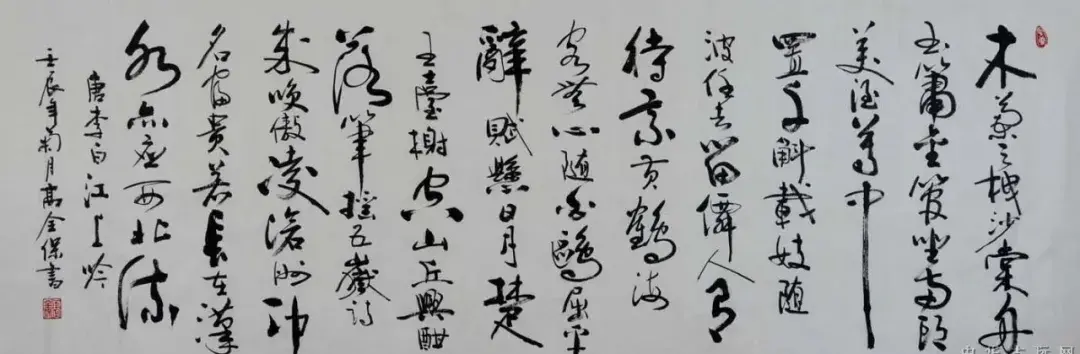 木蘭之枻沙棠舟
玉簫金管坐兩頭
美酒尊中
置千斛載妓随
波任去留僊人有
待乘黄鶴海
客無心随白鷗屈平
辭賦懸日月楚
王臺榭空山丘興酣
落筆摇五嶽詩
成咲傲凌滄洲功
名富貴若長在漢
水亦應西北流
唐李白江上吟
壬辰年菊月高全保書